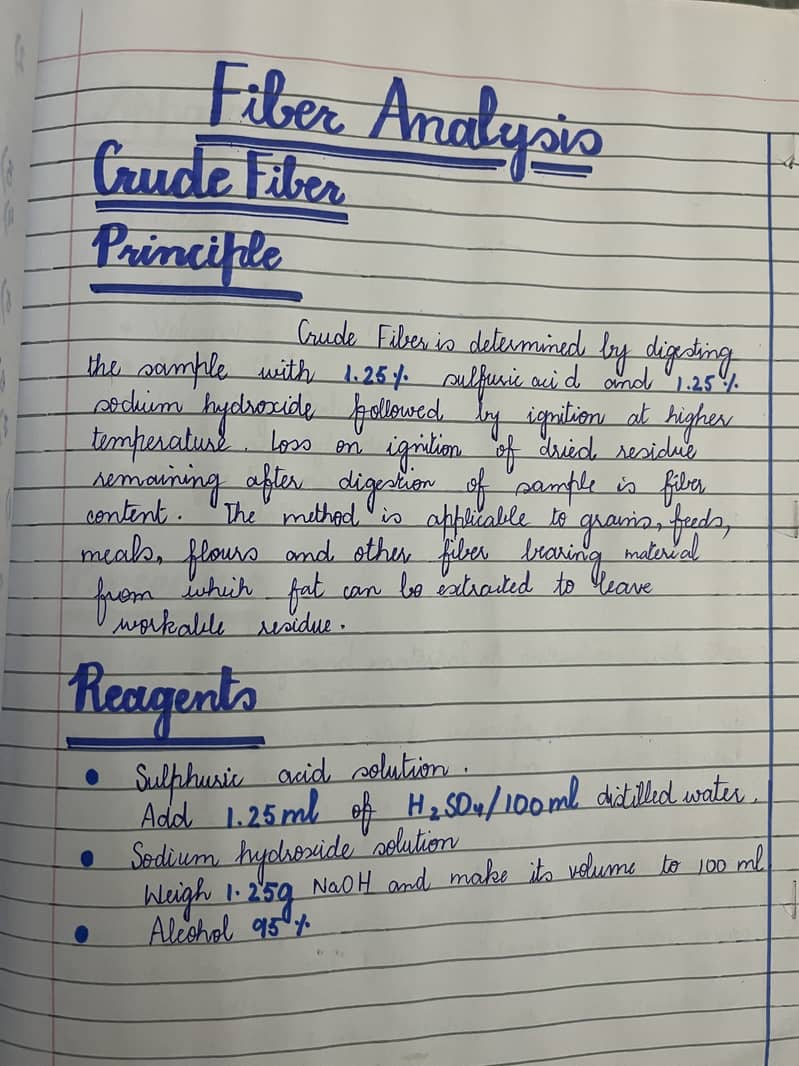 Fiber Analysis
Crude Fiber
Principle
Crude Fiber is determined by digesting
the sample with 1.25% sulfuric acid and 1.25%
sodium hydroxide followed by ignition at higher
temperature. Loss on ignition of dried residue
remaining after digestion of sample is fiber
content. The method is applicable to grains, feeds,
meals, flours and other fiber bearing material
from which fat can be extracted to leave
workable residue.
Reagents
• Sulphuric acid solution.
Add 1.25ml of H₂SO₄/100ml distilled water.
• Sodium hydroxide solution
Weigh 1.25g NaOH and make its volume to 100 ml
• Alcohol 95%